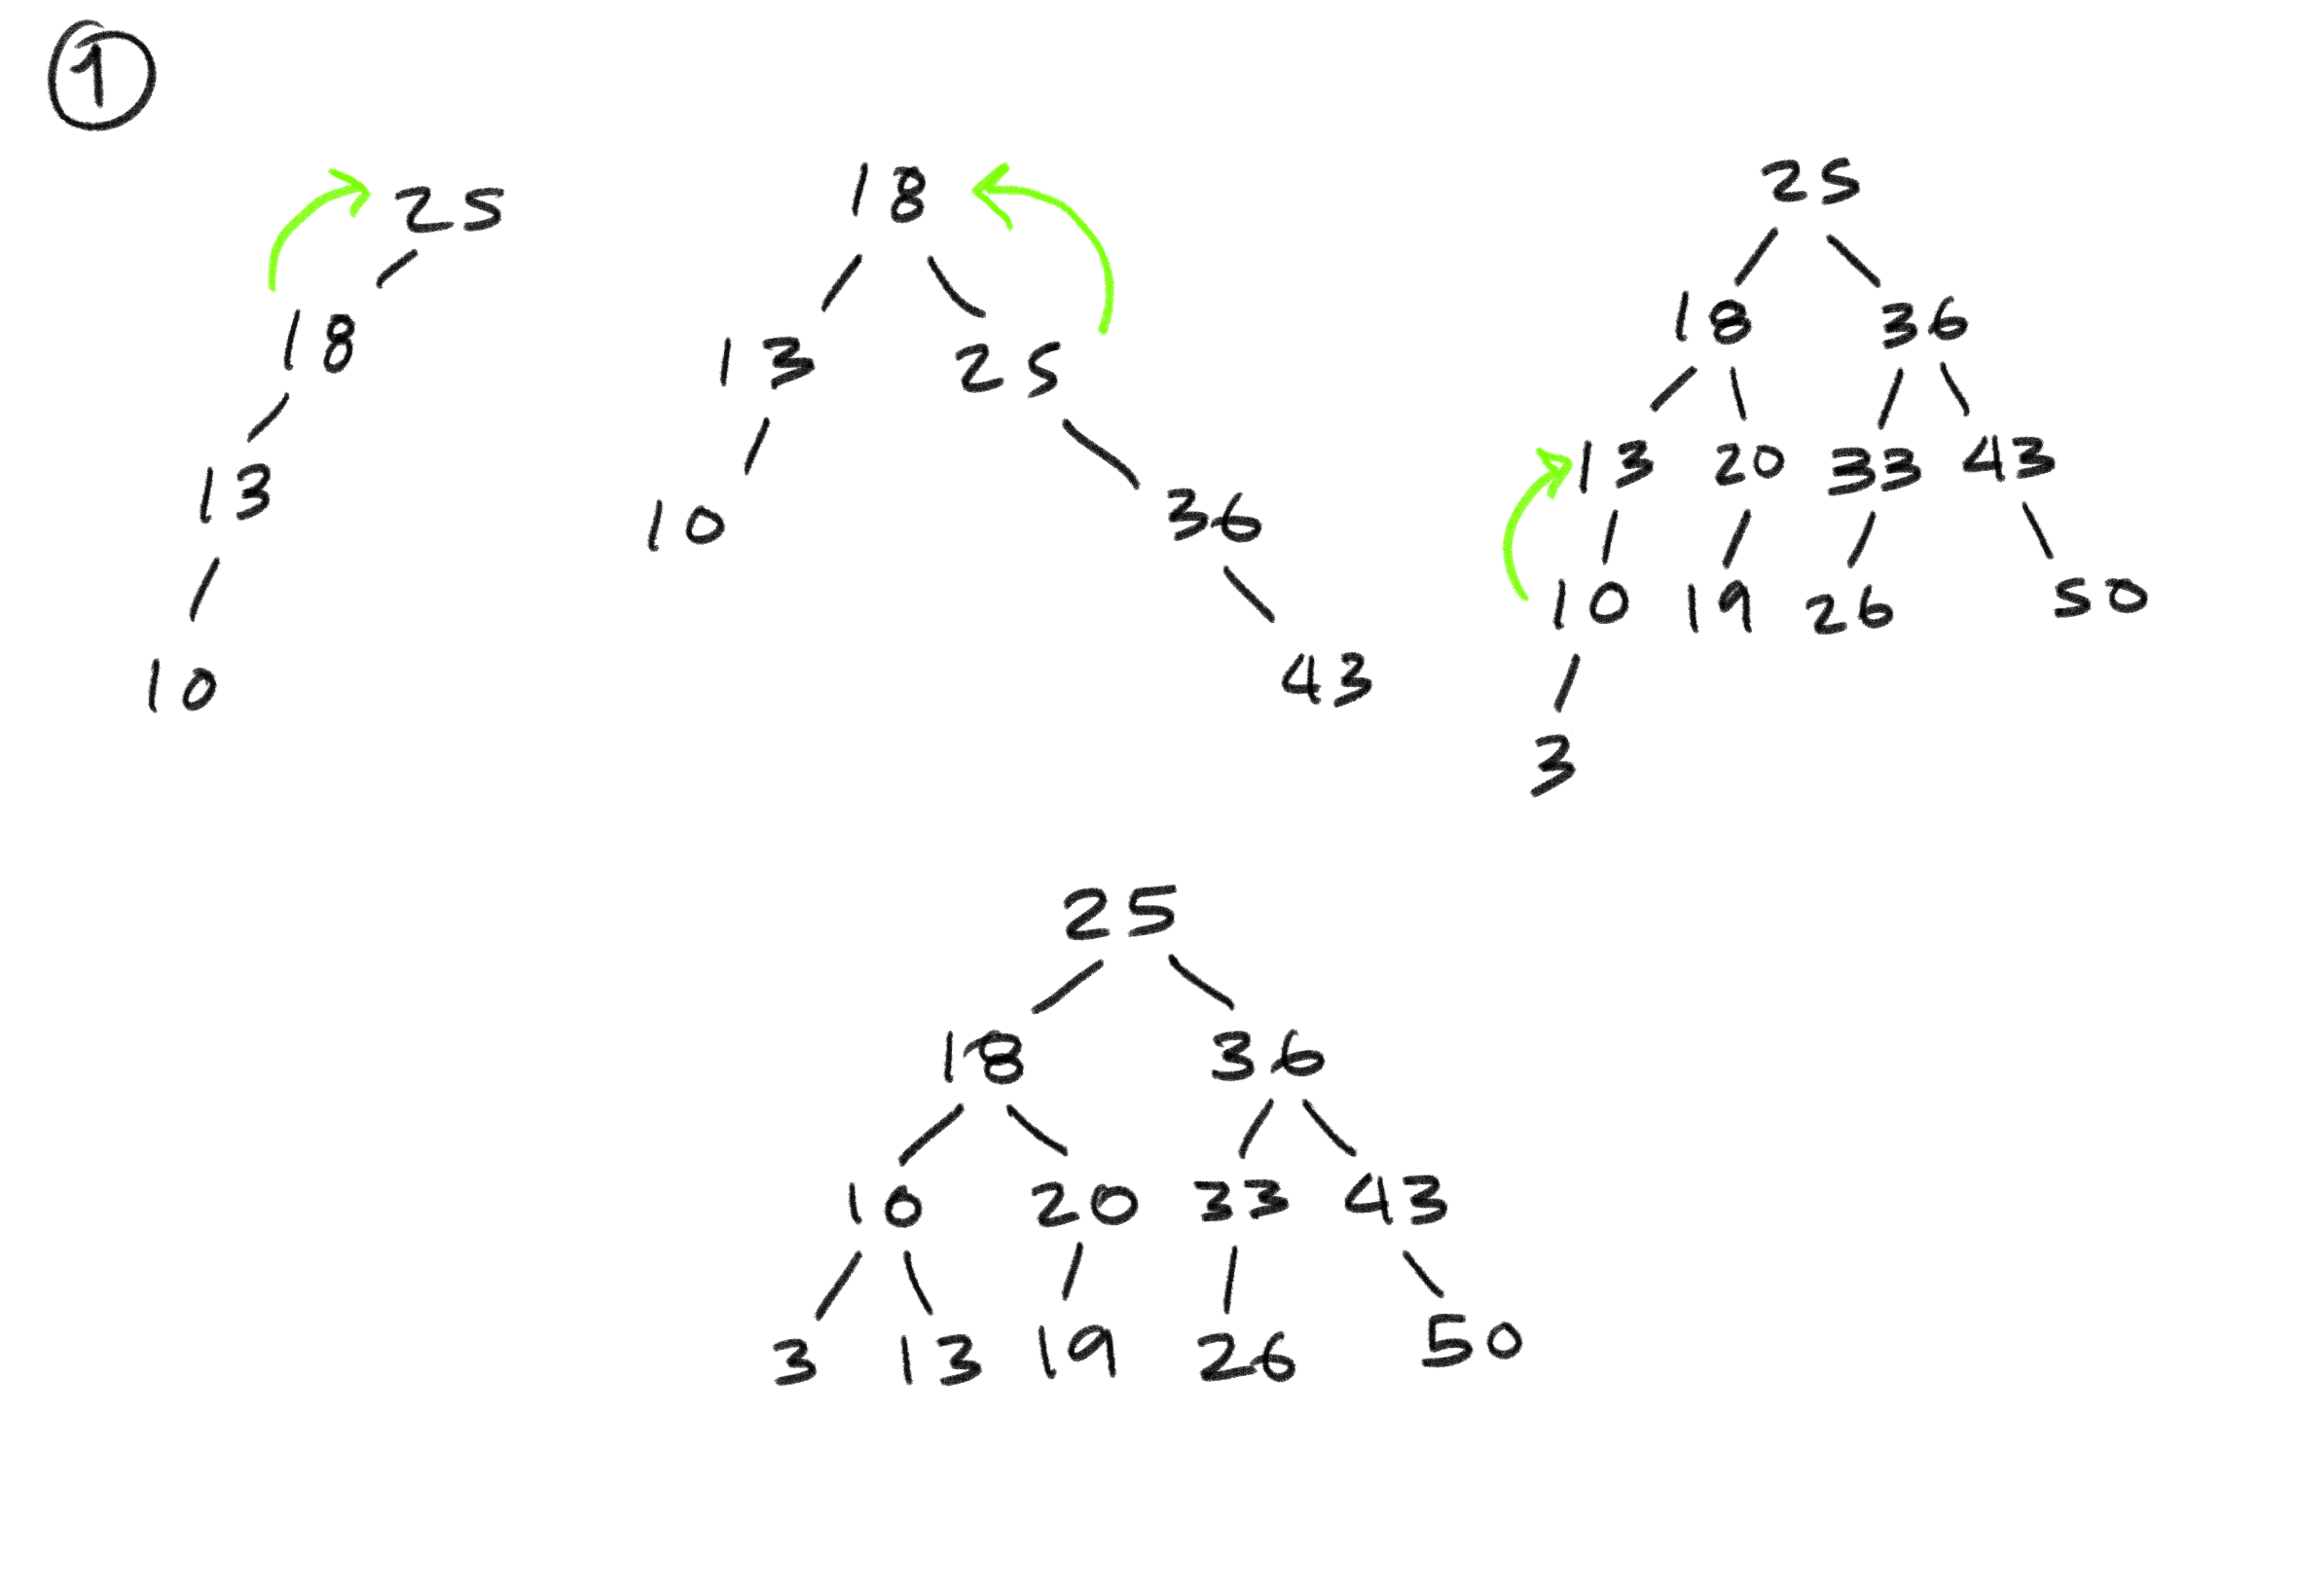 1
25
18
13
10
18
13 25
10 36
43
25
18 36
13 20 33 43
10 19 26 50
3
25
18 36
10 20 33 43
3 13 19 26 50